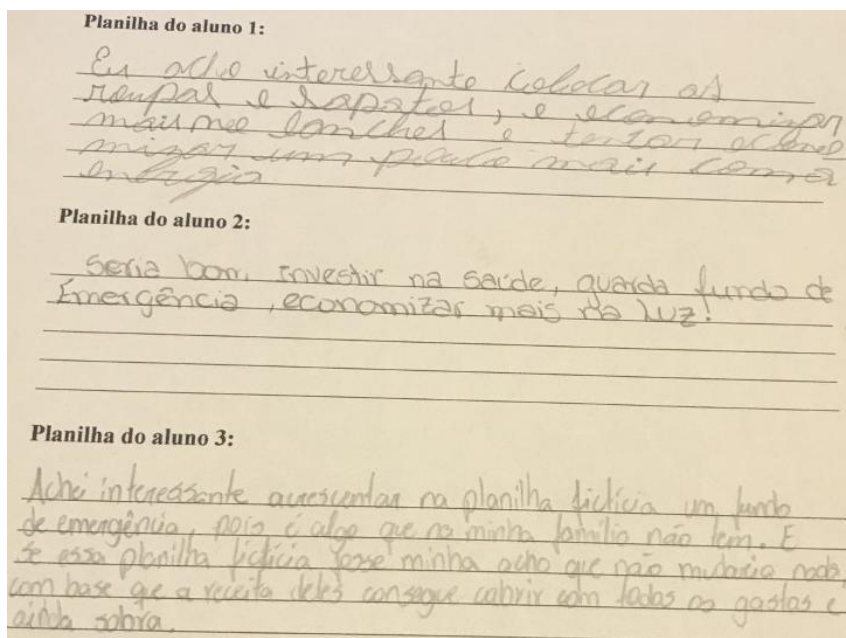 Planilha do aluno 1:
Eu acho interessante colocar as
roupas e sapatos, e economizar
mais nos lanches e tentar econo
mizar um pouco mais com a
energia
Planilha do aluno 2:
Seria bom, investir na saúde, guarda fundo de
Emergência, economizar mais na luz!
Planilha do aluno 3:
Achei interessante acrescentar na planilha fictícia um fundo
de emergência, pois é algo que na minha família não tem. E
se essa planilha fictícia fosse minha acho que não mudaria nada,
com base que a receita deles consegue cobrir com todos os gastos e
ainda sobra.